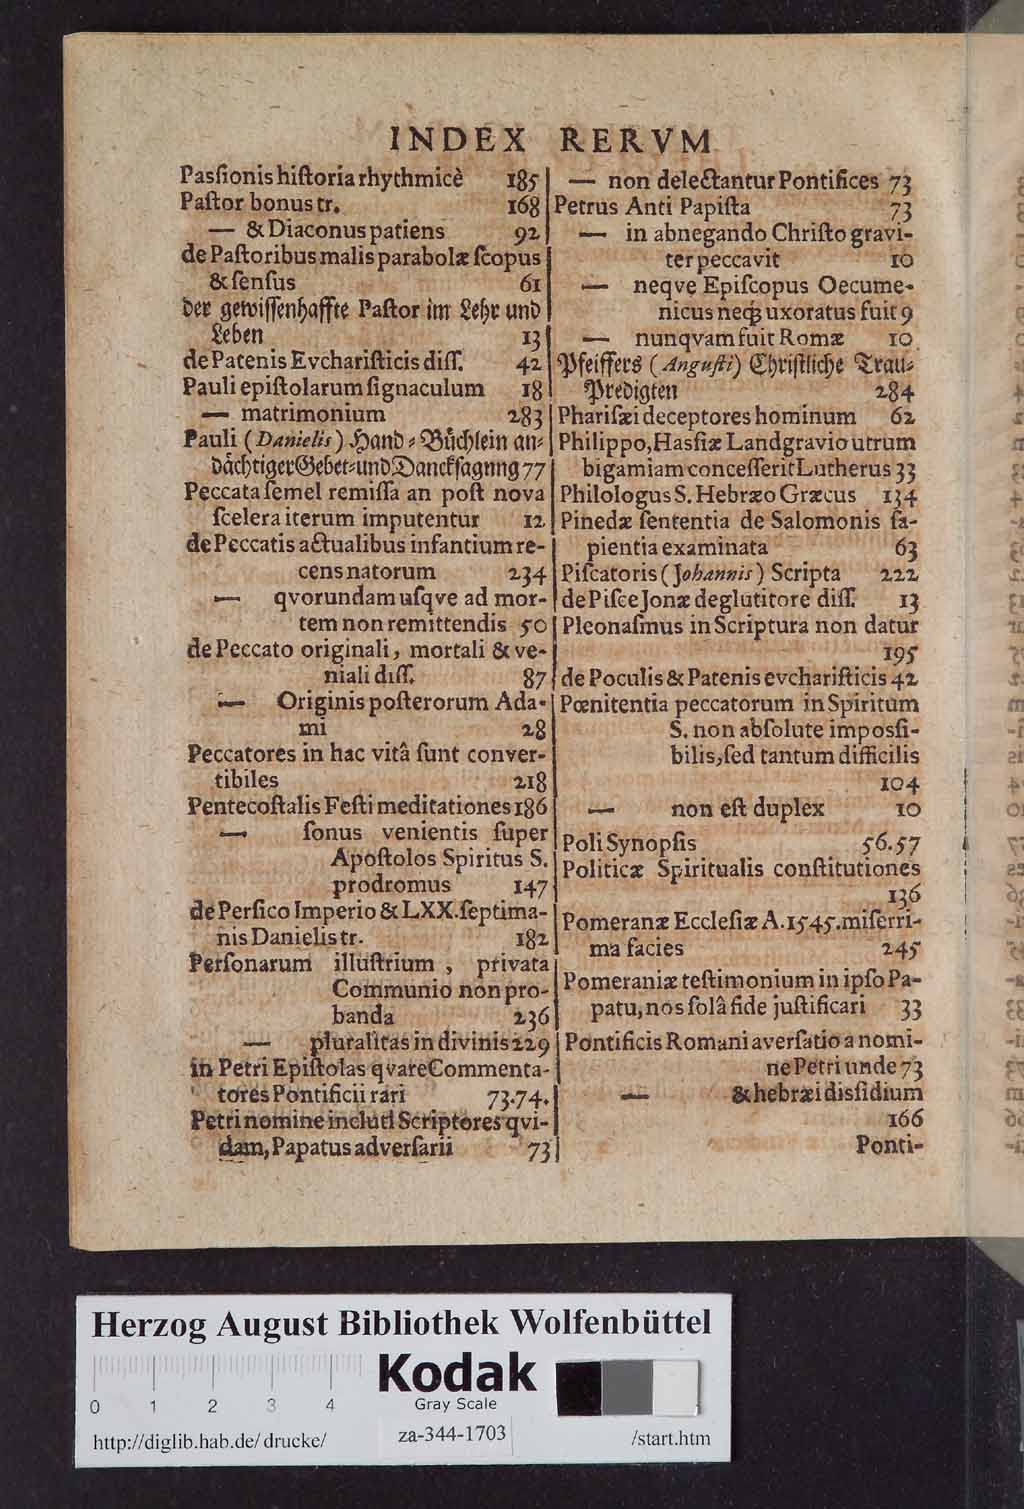 INDEX RERVM
Pasſionis hiſtoria rhythmicè 185
Paſtor bonus tr. 168
— & Diaconus patiens 92
de Paſtoribus malis parabolæ ſcopus
& ſenſus 61
Der gewiſſenhaffte Paſtor im Lehr und
Leben 13
de Patenis Evchariſticis diſſ. 42
Pauli epiſtolarum ſignaculum 18
— matrimonium 283
Pauli (Danielis) Hand⸗Büchlein an⸗
dächtiger Gebet⸗und Danckſagnng 77
Peccata ſemel remiſſa an poſt nova
ſcelera iterum imputentur 12
de Peccatis actualibus infantium re-
cens natorum 234
— qvorundam uſqve ad mor-
tem non remittendis 50
de Peccato originali, mortali & ve-
niali diſſ. 87
— Originis poſterorum Ada-
mi 28
Peccatores in hac vitâ ſunt conver-
tibiles 218
Pentecoſtalis Feſti meditationes 186
— ſonus venientis ſuper
Apoſtolos Spiritus S.
prodromus 147
de Perſico Imperio & LXX. ſeptima-
nis Danielis tr. 182
Perſonarum illuſtrium, privata
Communio non pro-
banda 236
— pluralitas in divinis 229
in Petri Epiſtolas qvare Commenta-
tores Pontificii rari 73.74.
Petri nomine incluti Scriptores qvi-
dam, Papatus adverſarii 73
— non delectantur Pontifices 73
Petrus Anti Papiſta 73
— in abnegando Chriſto gravi-
ter peccavit 10
— neqve Epiſcopus Oecume-
nicus neqꝫ uxoratus fuit 9
— nunqvam fuit Romæ 10.
Pfeiffers (Anguſti) Chriſtliche Trau⸗
Predigten 284
Phariſæi deceptores hominum 62
Philippo, Hasſiæ Landgravio utrum
bigamiam conceſſerit Lutherus 33
Philologus S. Hebræo Græcus 134
Pinedæ ſententia de Salomonis ſa-
pientia examinata 63
Piſcatoris (Johannis) Scripta 222
de Piſce Jonæ deglutitore diſſ. 13
Pleonaſmus in Scriptura non datur
195
de Poculis & Patenis evchariſticis 42
Pœnitentia peccatorum in Spiritum
S. non abſolute imposſi-
bilis, ſed tantum difficilis
104
— non eſt duplex 10
Poli Synopſis 56.57
Politicæ Spiritualis conſtitutiones
136
Pomeranæ Eccleſiæ A. 1545. miſerri-
ma facies 245
Pomeraniæ teſtimonium in ipſo Pa-
patu, nos ſolâ fide juſtificari 33
Pontificis Romani averſatio a nomi-
ne Petri unde 73
— & hebræi disſidium
166
Ponti-
Herzog August Bibliothek Wolfenbüttel
Kodak
Gray Scale
0 1 2 3 4
http://diglib.hab.de/drucke/ za-344-1703 /start.htm